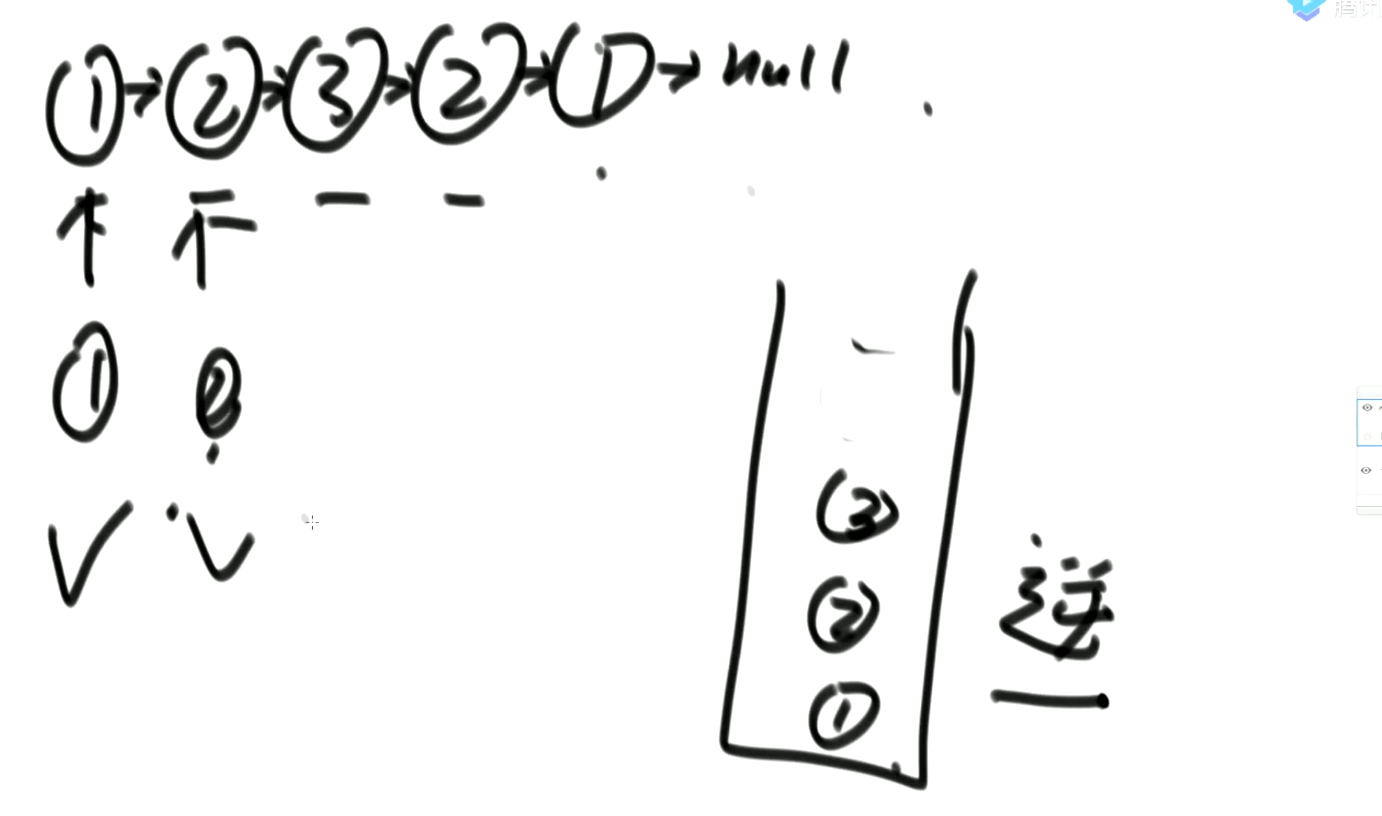 ① → ② → ③ → ② → ① → null
① ②
③
②
①
逆
腾讯